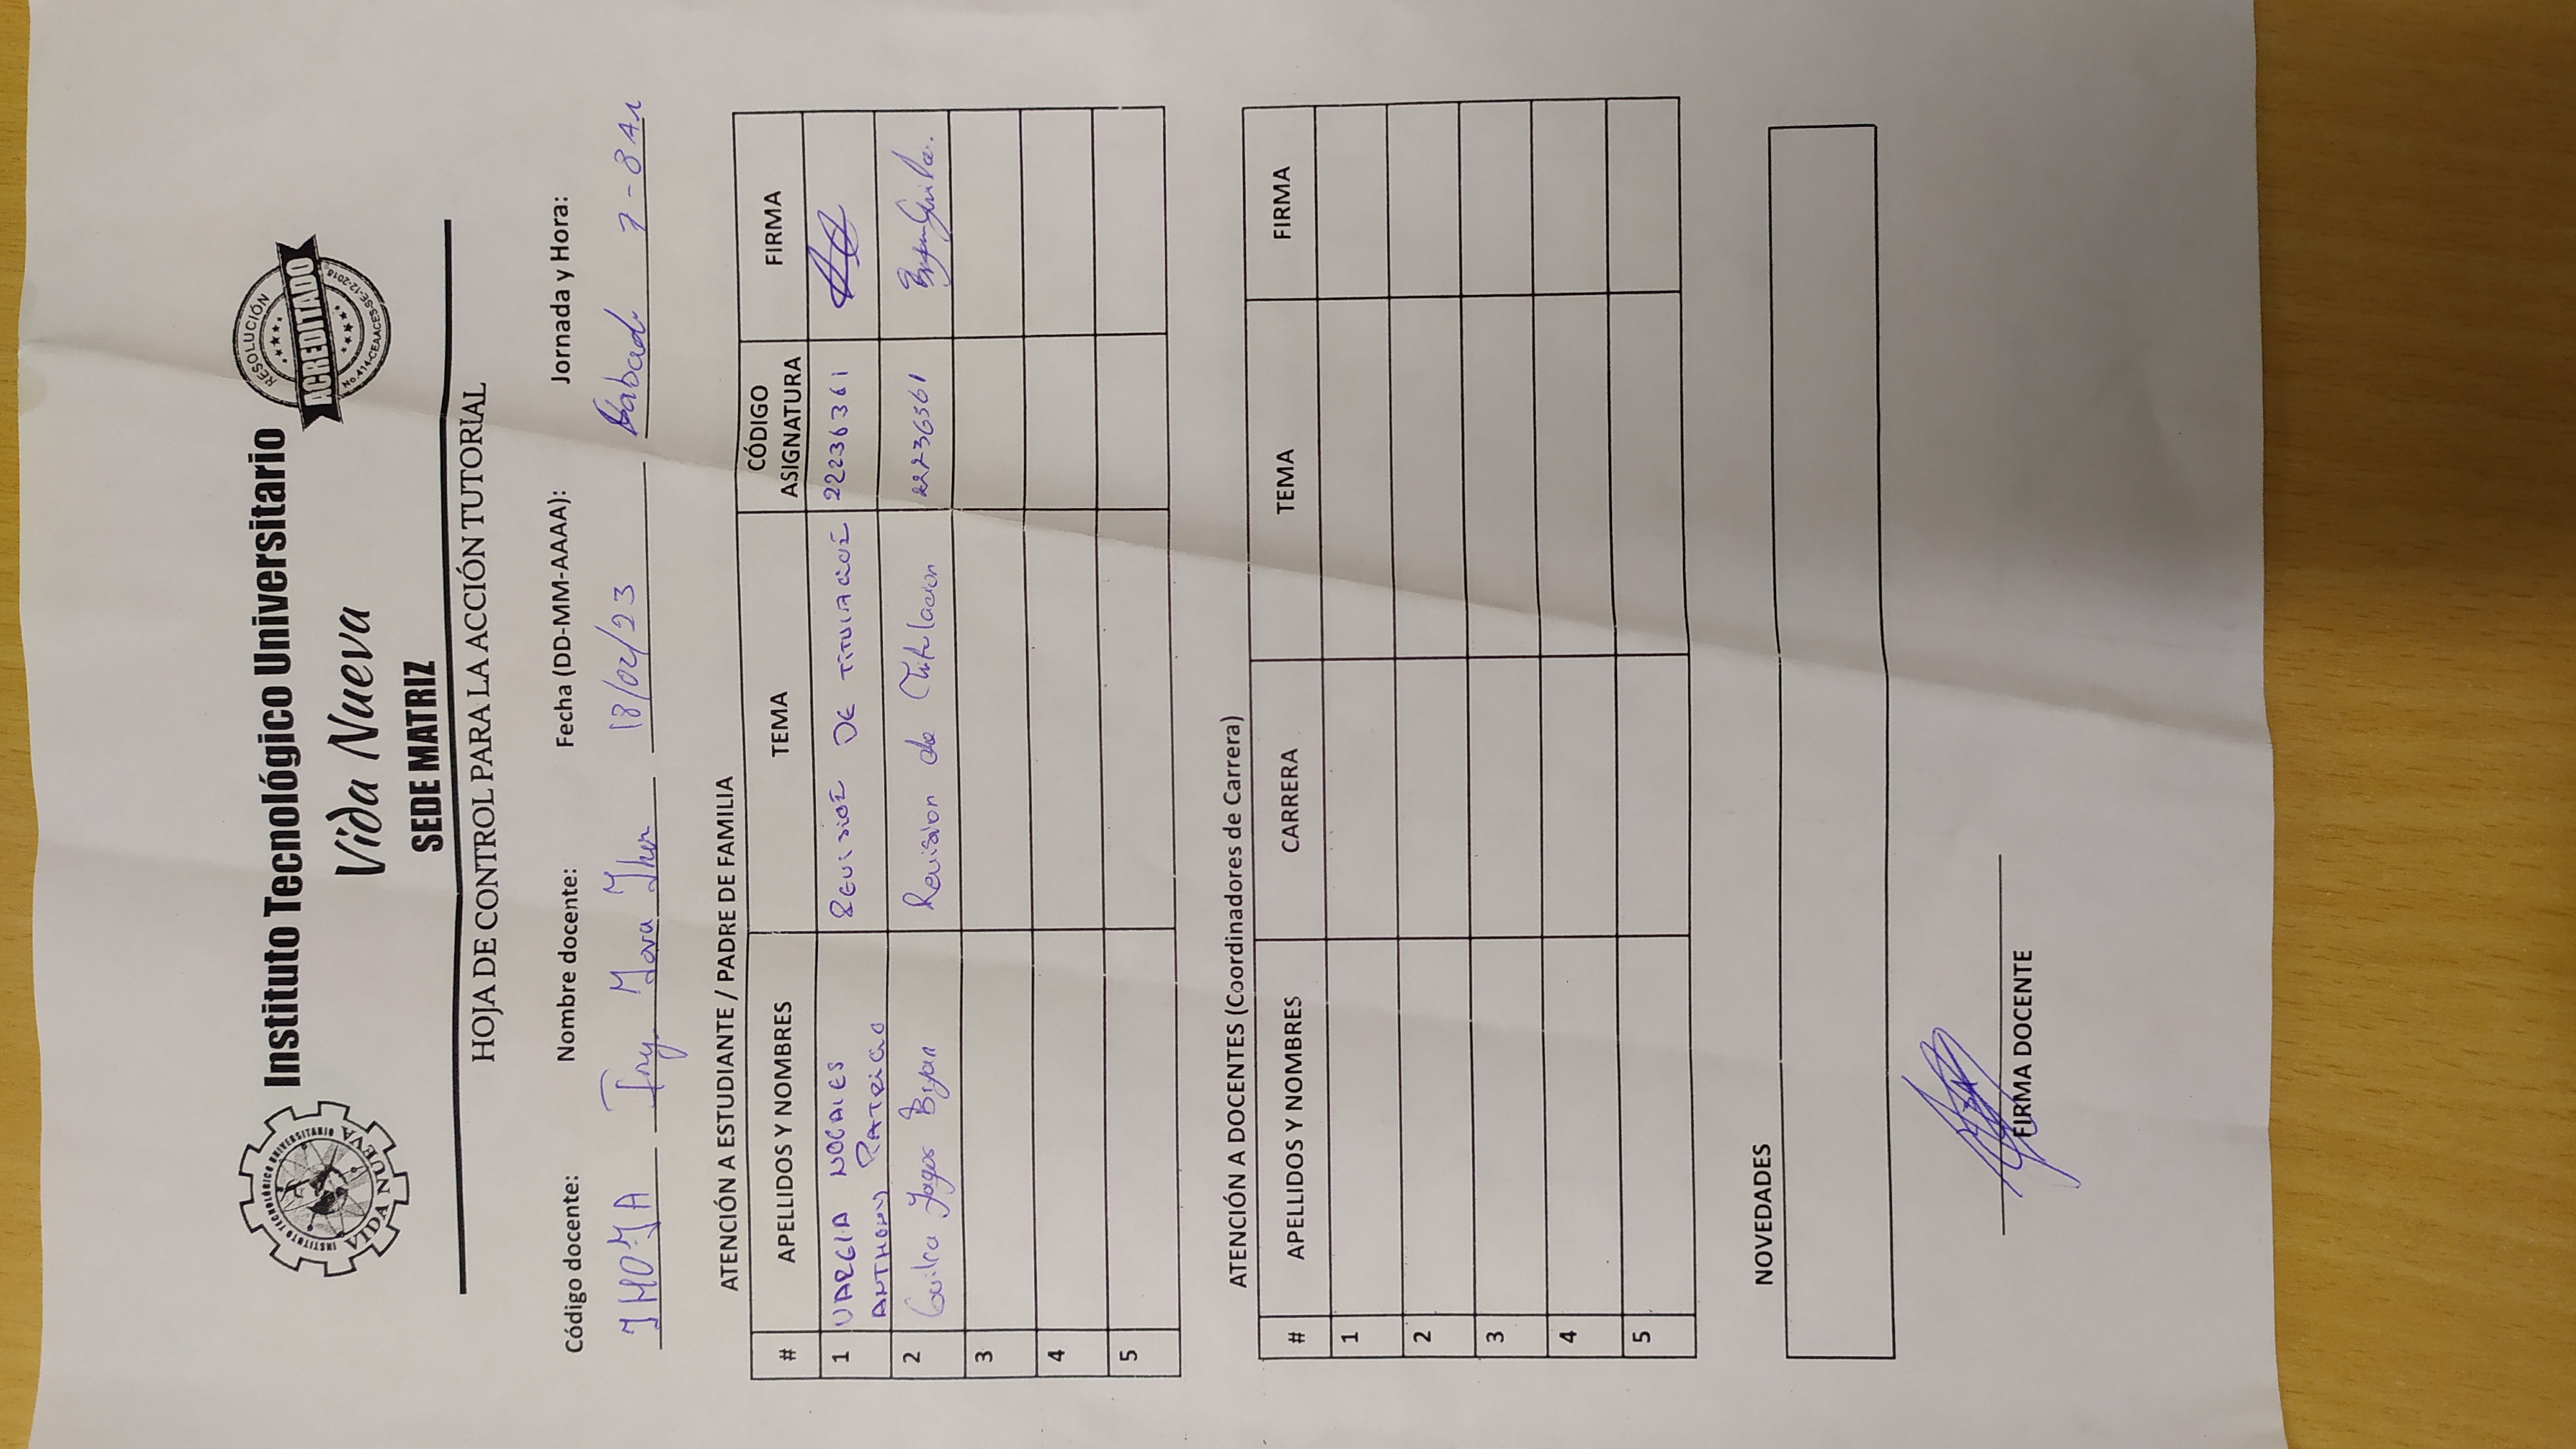 INSTITUTO TECNOLÓGICO UNIVERSITARIO
VIDA NUEVA
Instituto Tecnológico Universitario
Vida Nueva
SEDE MATRIZ
RESOLUCIÓN
ACREDITADO
No.414-CEAACES-SE-12-2018
HOJA DE CONTROL PARA LA ACCIÓN TUTORIAL
Código docente: Nombre docente: Fecha (DD-MM-AAAA): Jornada y Hora:
JHOJA Ing. Jova Jhon 18/02/23 Sabado 7-8 AM
ATENCIÓN A ESTUDIANTE / PADRE DE FAMILIA
# APELLIDOS Y NOMBRES TEMA CÓDIGO ASIGNATURA FIRMA
1 ANTHONY PATRICIO REVISION DE TITULACION 22236361
2 Bryan Revision de Titulacion 22236361
3
4
5
ATENCIÓN A DOCENTES (Coordinadores de Carrera)
# APELLIDOS Y NOMBRES CARRERA TEMA FIRMA
1
2
3
4
5
NOVEDADES
FIRMA DOCENTE